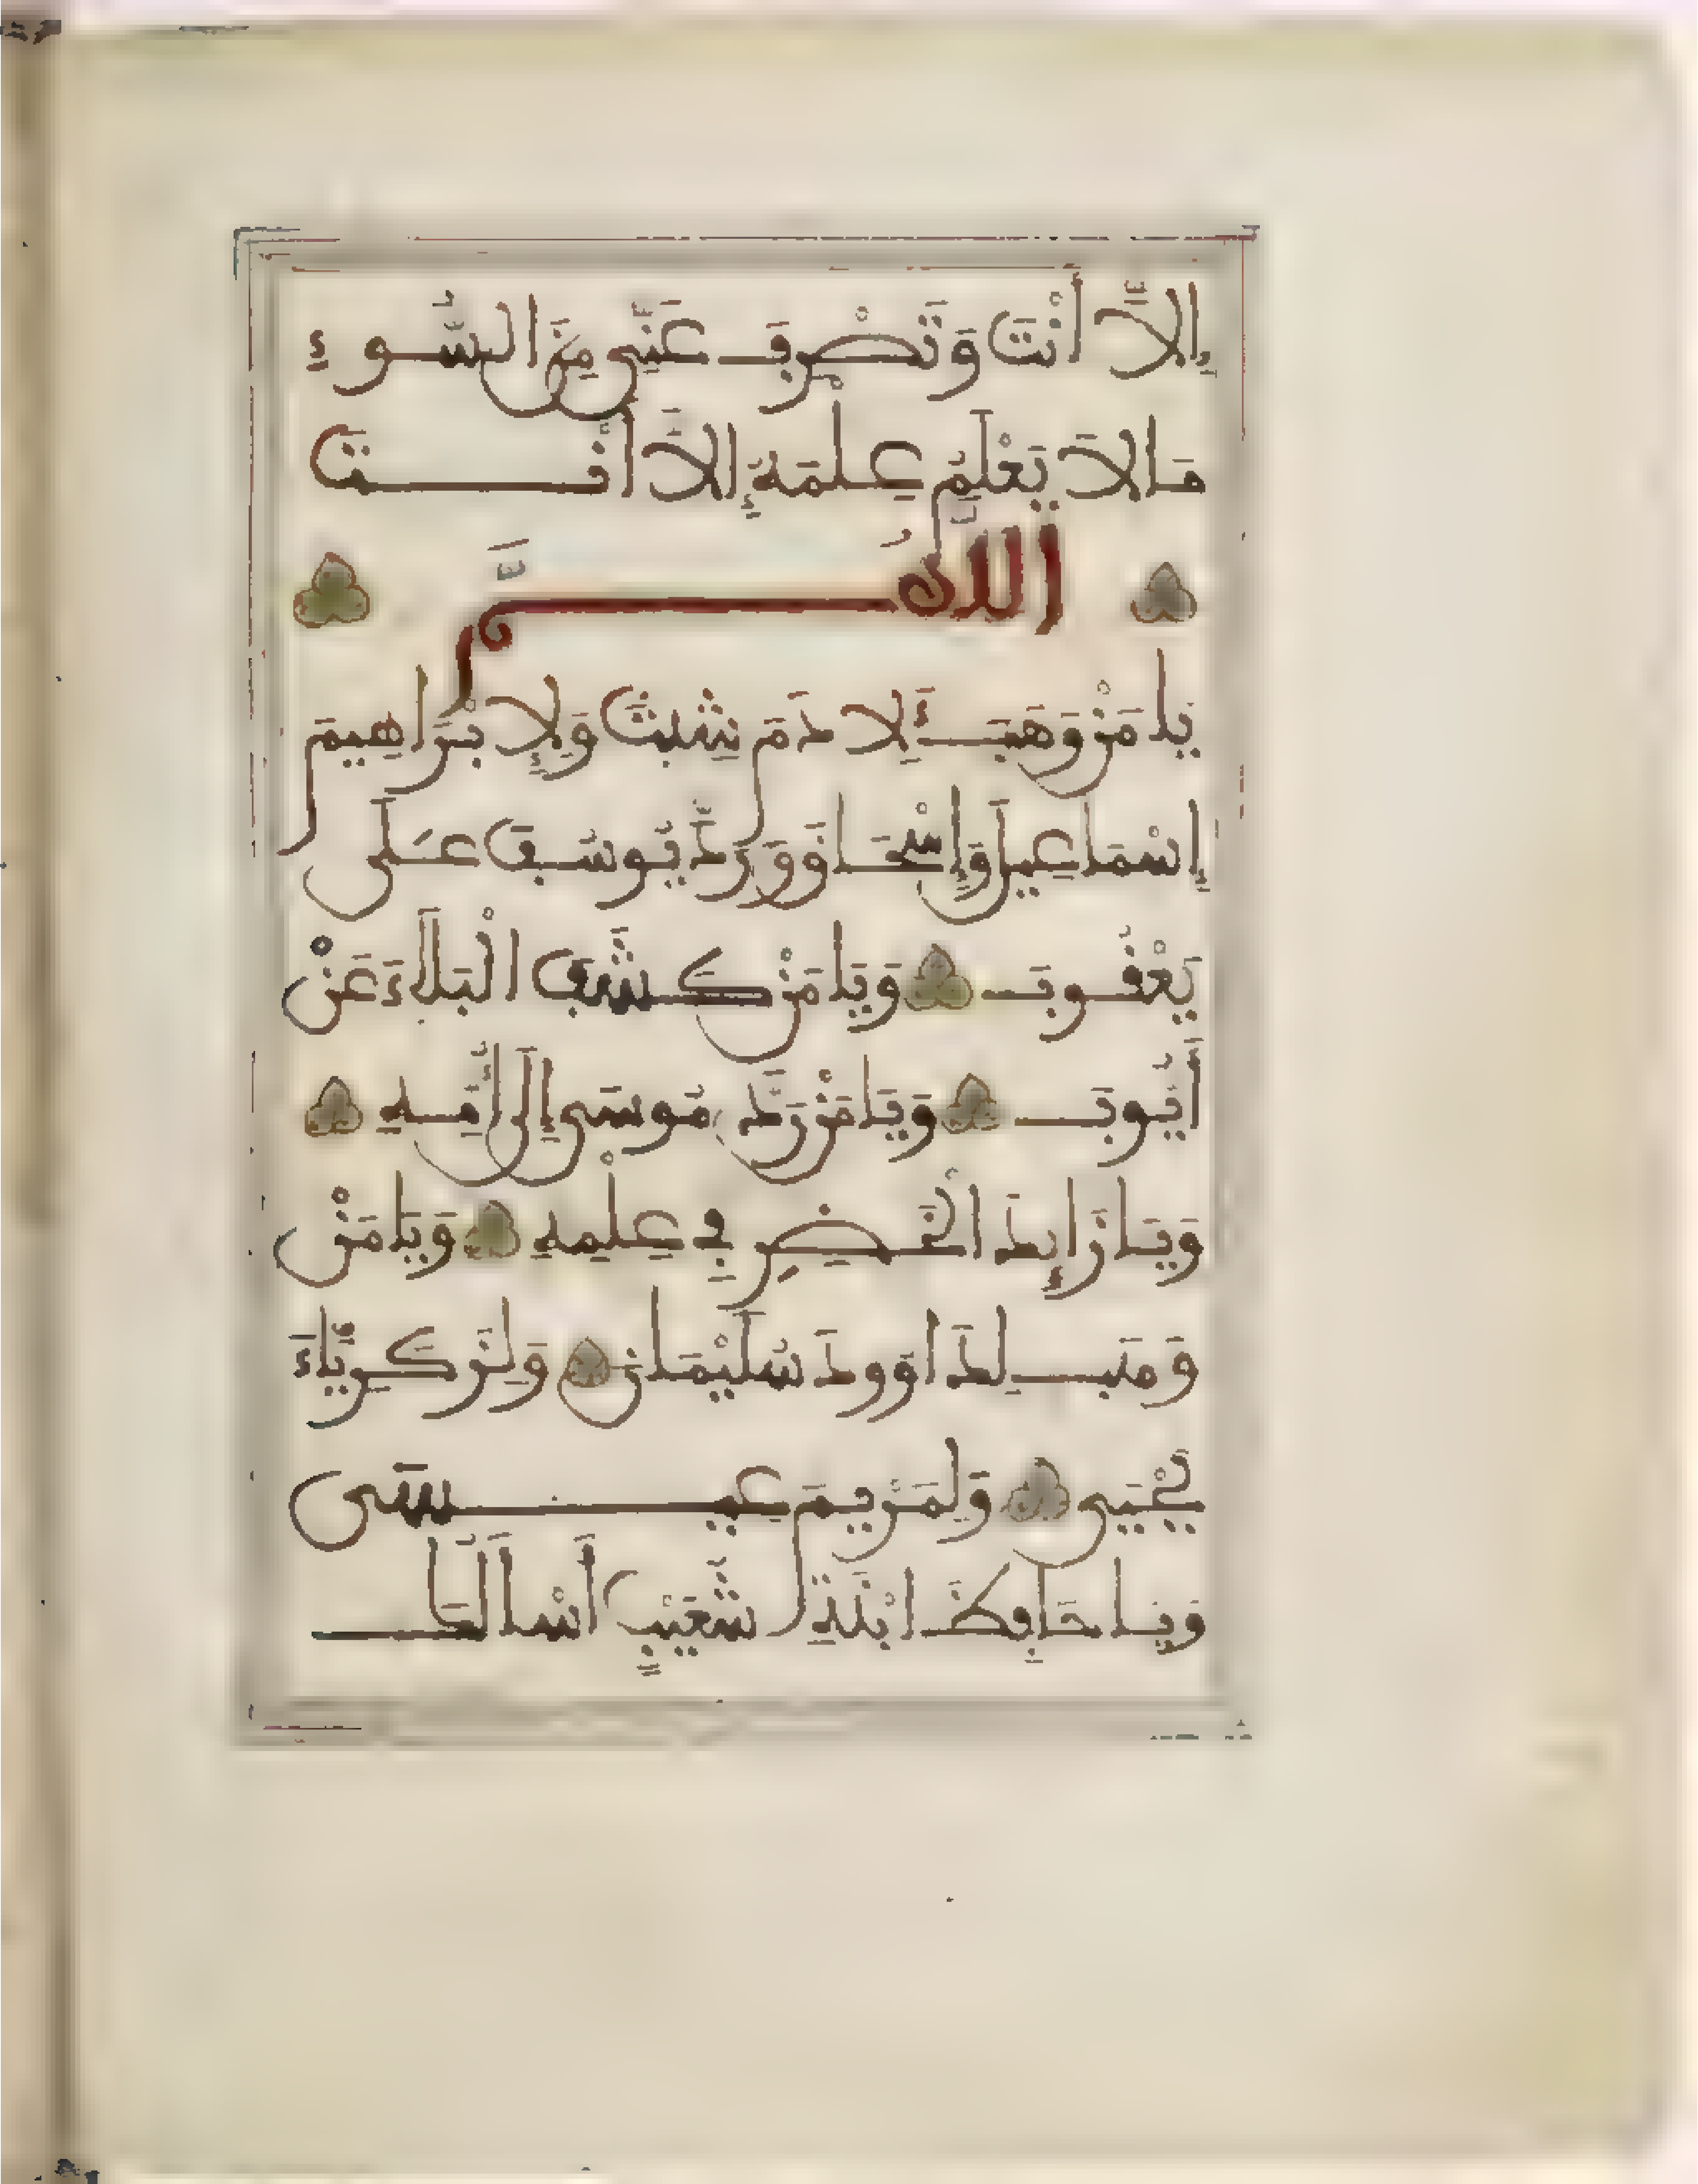 إِلَّا أَنْتَ وَتَصْرِفَ عَنِّي مِنَ السُّوءِ
مَا لَا يَعْلَمُ عِلْمَهُ إِلَّا أَنْتَ
اللَّهُمَّ
يَا مَنْ وَهَبَ لِأَدَمَ شِيثَ وَلِإِبْرَاهِيمَ
إِسْمَاعِيلَ وَإِسْحَاقَ وَرَدَّ يُوسُفَ عَلَى
يَعْقُوبَ وَيَا مَنْ كَشَفَ الْبَلَاءَ عَنْ
أَيُّوبَ وَيَا مَنْ رَدَّ مُوسَى إِلَى أُمِّهِ
وَيَا زَائِدَ الْخَضِرِ فِي عِلْمِهِ وَيَا مَنْ
وَهَبَ لِدَاوُودَ سُلَيْمَانَ وَلِزَكَرِيَّاءَ
يَحْيَى وَلِمَرْيَمَ عِيسَى
وَيَا حَافِظَ ابْنَةِ شُعَيْبٍ أَسْأَلُكَ